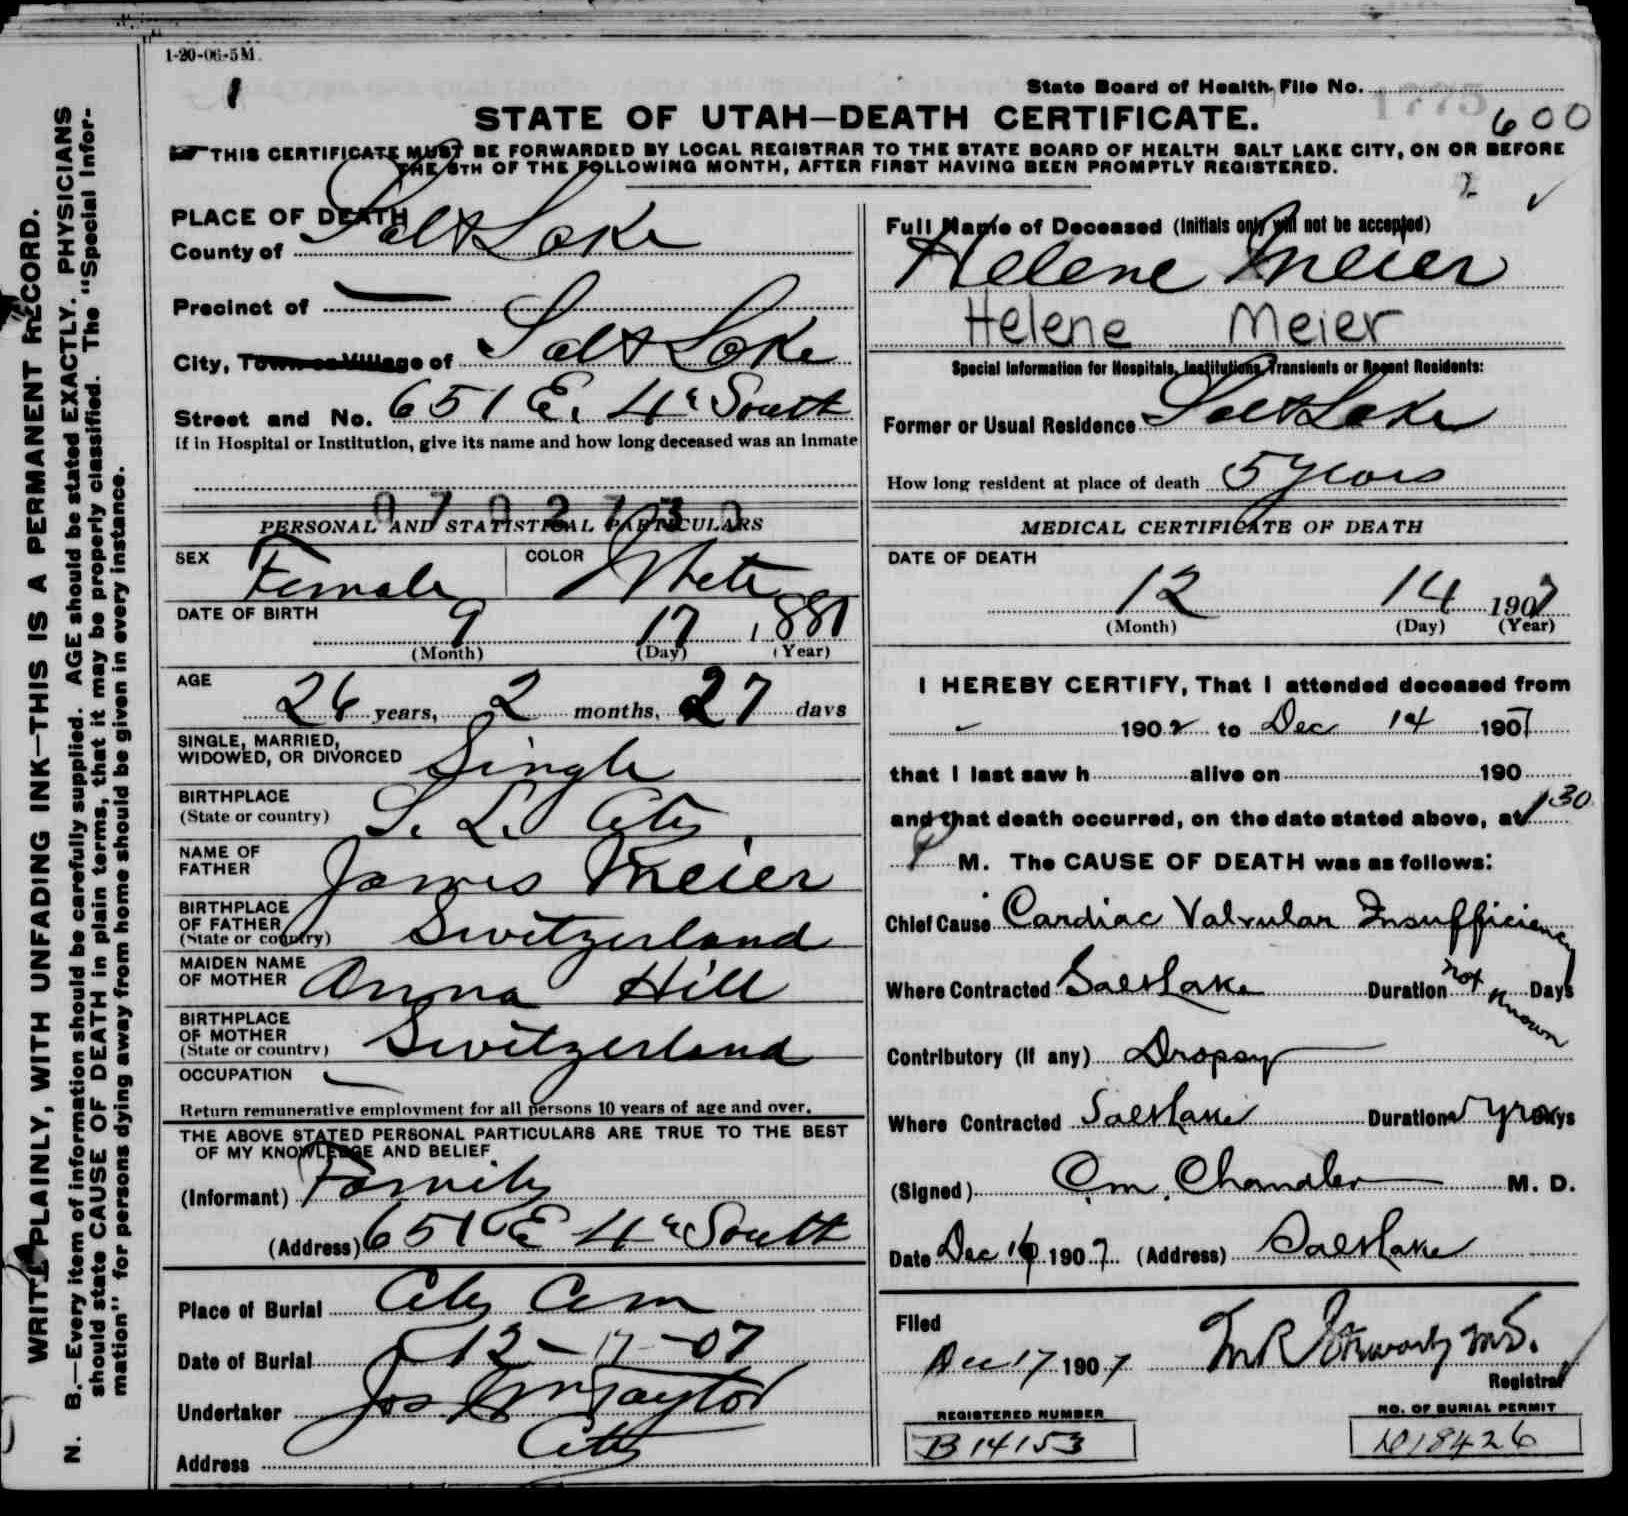 1-20-06-5M.
1
State Board of Health, File No. 1775
600
STATE OF UTAH—DEATH CERTIFICATE.
THIS CERTIFICATE MUST BE FORWARDED BY LOCAL REGISTRAR TO THE STATE BOARD OF HEALTH SALT LAKE CITY, ON OR BEFORE
THE 5TH OF THE FOLLOWING MONTH, AFTER FIRST HAVING BEEN PROMPTLY REGISTERED.
2 ✓
WRITE PLAINLY, WITH UNFADING INK—THIS IS A PERMANENT RECORD.
N. B.—Every item of information should be carefully supplied. AGE should be stated EXACTLY. PHYSICIANS
should state CAUSE OF DEATH in plain terms, that it may be properly classified. The "Special Infor-
mation" for persons dying away from home should be given in every instance.
PLACE OF DEATH
County of Salt Lake
Precinct of —
City, Town or Village of Salt Lake
Street and No. 651 E. 4th South
If in Hospital or Institution, give its name and how long deceased was an inmate
PERSONAL AND STATISTICAL PARTICULARS
SEX Female COLOR White
DATE OF BIRTH 9 17 1881
(Month) (Day) (Year)
AGE 26 years, 2 months, 27 days
SINGLE, MARRIED,
WIDOWED, OR DIVORCED Single
BIRTHPLACE
(State or country) S. L. City
NAME OF
FATHER James Meier
BIRTHPLACE
OF FATHER
(State or country) Switzerland
MAIDEN NAME
OF MOTHER Anna Hill
BIRTHPLACE
OF MOTHER
(State or country) Switzerland
OCCUPATION —
Return remunerative employment for all persons 10 years of age and over.
THE ABOVE STATED PERSONAL PARTICULARS ARE TRUE TO THE BEST
OF MY KNOWLEDGE AND BELIEF
(Informant) Family
(Address) 651 E 4th South
Place of Burial City Cem
Date of Burial 12-17-07
Undertaker Jos Wm Taylor
Address City
Full Name of Deceased (Initials only will not be accepted)
Helene Meier
Helene Meier
Special Information for Hospitals, Institutions, Transients or Recent Residents:
Former or Usual Residence Salt Lake
How long resident at place of death 5 years
MEDICAL CERTIFICATE OF DEATH
DATE OF DEATH
12 14 1907
(Month) (Day) (Year)
I HEREBY CERTIFY, That I attended deceased from
1902 to Dec 14 1907
that I last saw h alive on 190
and that death occurred, on the date stated above, at 1 30
M. The CAUSE OF DEATH was as follows:
Chief Cause Cardiac Valvular Insufficiency
Where Contracted Salt Lake Duration not known Days
Contributory (If any) Dropsy
Where Contracted Salt Lake Duration yrs Days
(Signed) C.M. Chandler M. D.
Date Dec 16 1907 (Address) Salt Lake
Filed
Dec 17 1907
Registrar
REGISTERED NUMBER
B14153
NO. OF BURIAL PERMIT
18426